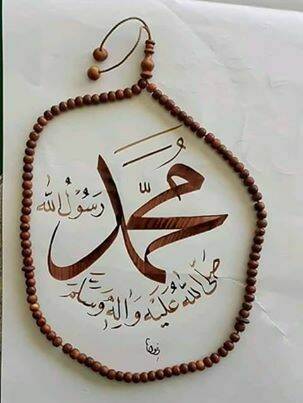 محمد
رَسُولُ الله
صَلَّى اللّٰه عَلَيْهِ وَالِهٖ وَسَلَّمَ